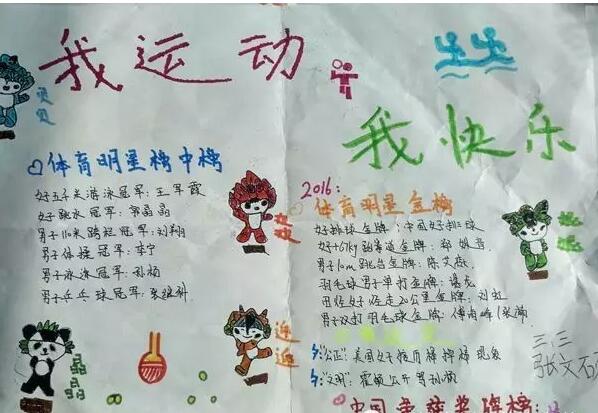 我运动
我快乐
贝贝
体育明星榜中榜
女子五千米游泳冠军：王军霞
女子跳水冠军：郭晶晶
男子110米跨栏冠军：刘翔
男子体操冠军：李宁
男子冠军：孙杨
男子乒乓球冠军：张继科
欢欢
晶晶
迎迎
妮妮
2016：
体育明星金榜
女子排球金牌：中国女子排球
女子67kg跆拳道金牌：郑姝音
男子10m跳台金牌：陈艾森
羽毛球男子单打金牌：谌龙
田径女子竞走20公里金牌：刘虹
男子双打羽毛球金牌：傅海峰/张楠
公正：美国女子接力棒掉棒
文明：霍顿公开骂孙杨
三三
张文石
中国争获奖牌榜：